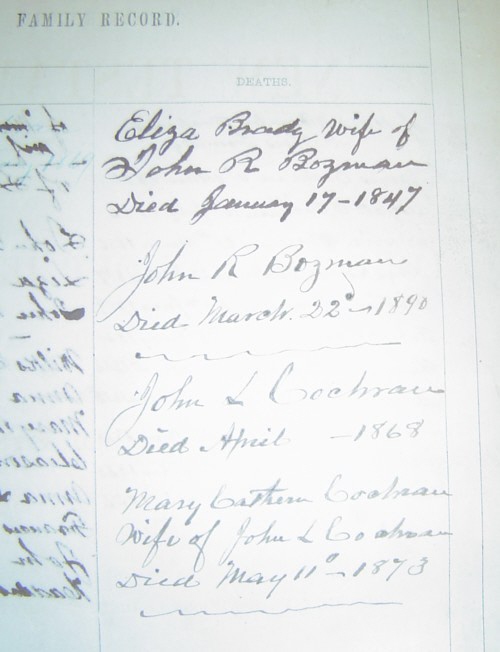 FAMILY RECORD.
DEATHS.
Eliza Brady Wife of
John R Bozman
Died January 17-1847
John R Bozman
Died March. 22d-1890
John L Cochran
Died April -1868
Mary Cathern Cochran
Wife of John L Cochran
Died May 11th-1873